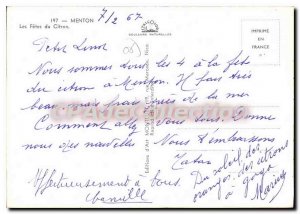 197 - MENTON
Les Fêtes du Citron.
7/2 67
COULEURS NATURELLES
IMPRIMÉ
EN
FRANCE
Nous sommes tous les 4 à la fête
du citron à Menton. Il fait très
beau, mais frais près de la mer
Comment allez vous tous. Donne
nous des nouvelles Nous t'embrassons
Tatou
Du soleil, des
oranges, des citrons
à gogo
Affectueusement à tous.